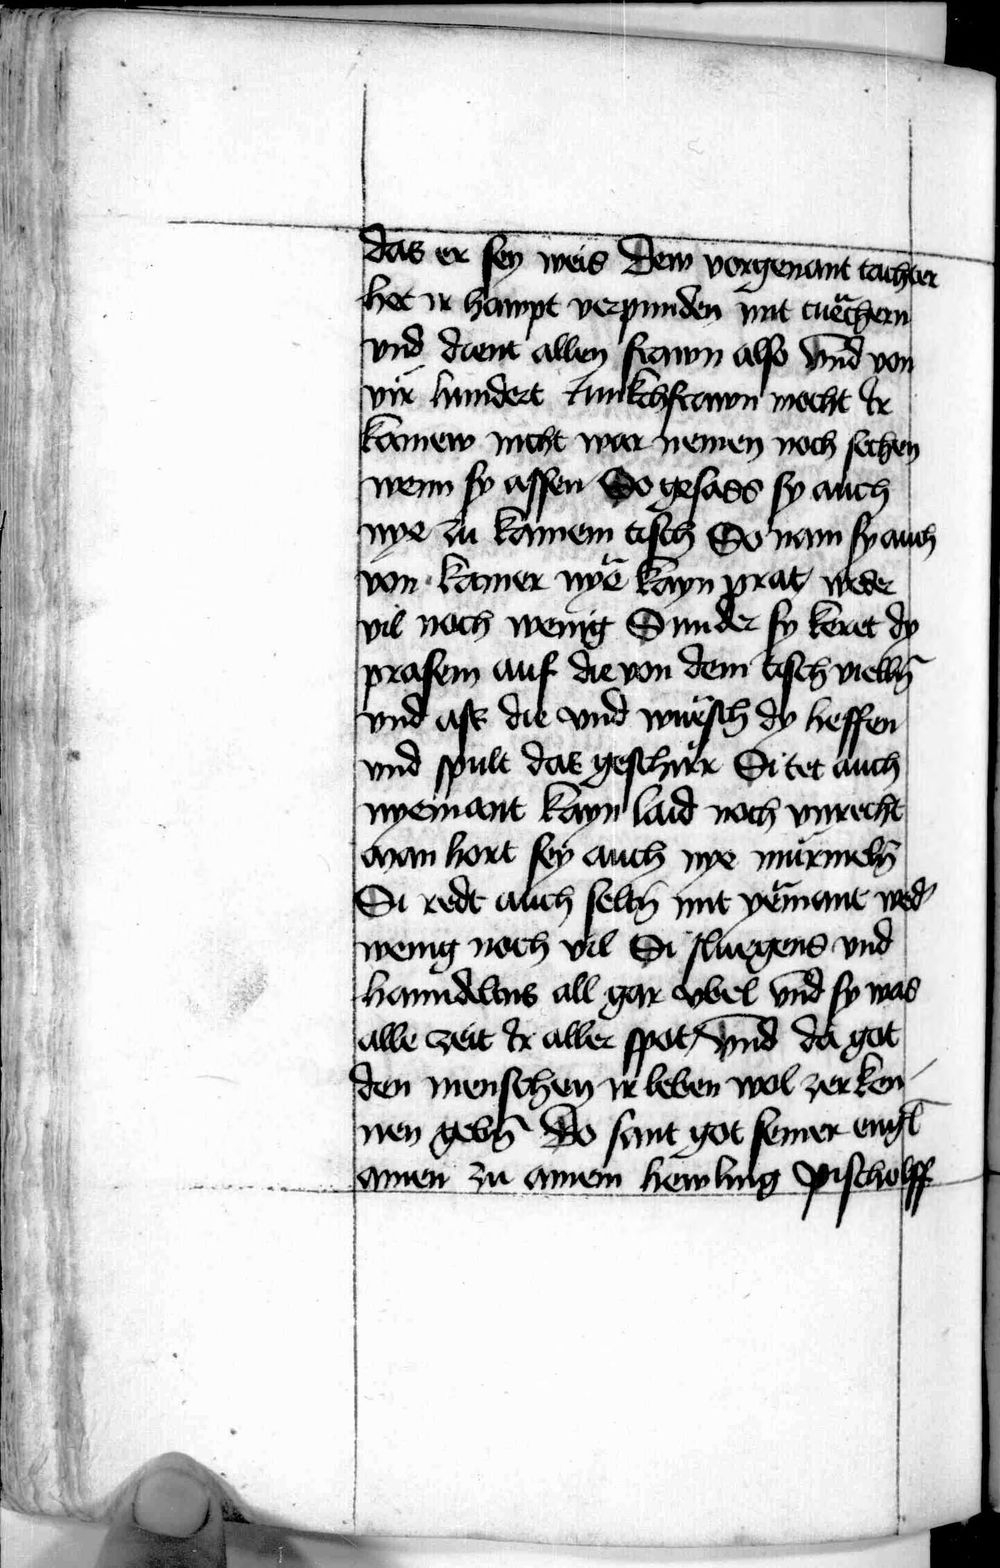 das er sey weis Dew vorgenant tachter
het ir hawpt verpunden mit tuͤechern
vnd dient allen frawn also vnd von
vir hundert Junkchfrawn mocht Ir
kainew nicht war nemen noch sechen
wenn sy assen Do gesass sy auch
nye zu kainem tisch So nam sy auch
von kainer nyͤe kayn prat weder
vil noch wenig Sunder sy keret dy
prasem auf die von dem tisch vielln̄
vnd ass die vnd wuͤsch dy heffen
vnd spult das geschirr Si tet auch
nyemant kayn laid noch vnrecht
man hort sey auch nye murmeln̄
Si redt auch seltn̄ mit yemant wed̛
wenig noch vil Si sluegens vnd
hanndelns all gar vbel vnd sy was
alle zeit Ir aller spot / vnd da got
den menschen ir leben wol zerken
nen gebn̄ Do sant got seiner engl̄
ainen zu ainem hewling pischolff